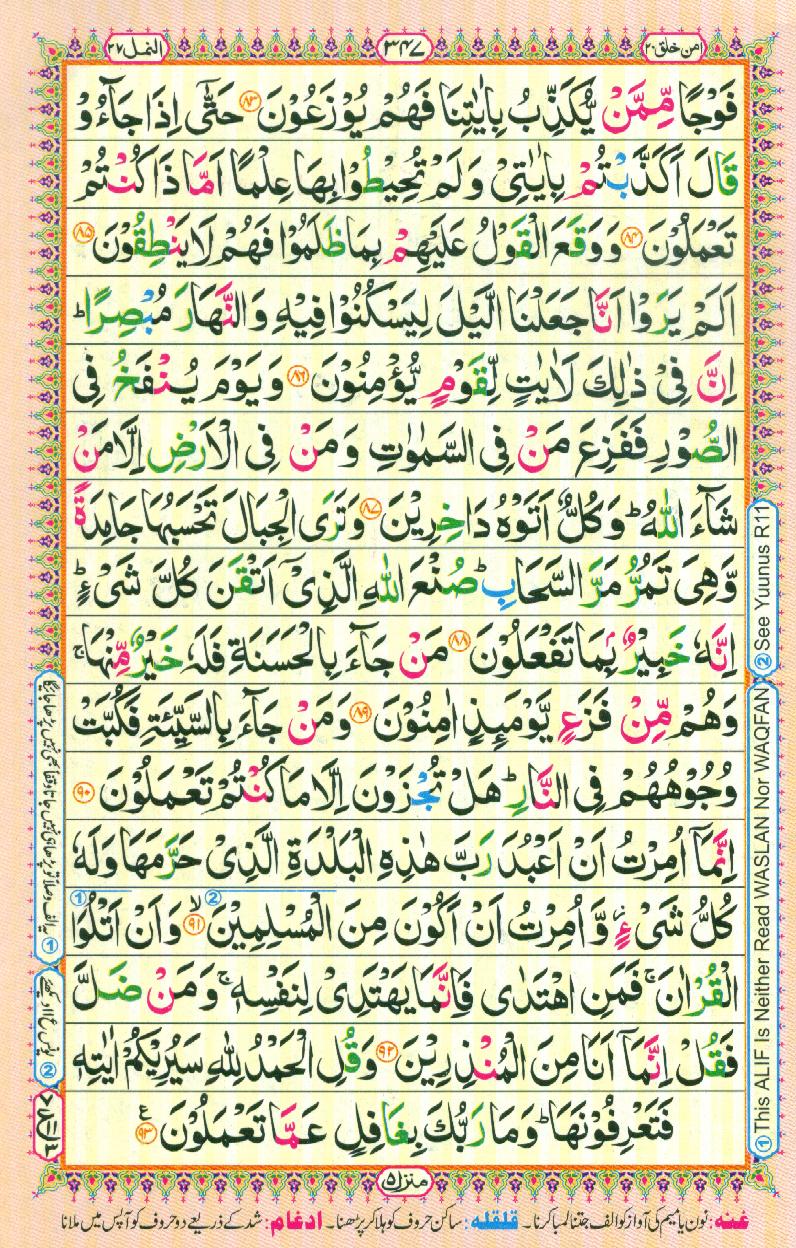 امن خلق ۲۰
۳۴۷
النمل ۲۷
فَوْجًا مِّمَّنْ يُّكَذِّبُ بِاٰيٰتِنَا فَهُمْ يُوْزَعُوْنَ ۸۳ حَتّٰٓى اِذَا جَآءُوْ
قَالَ اَكَذَّبْتُمْ بِاٰيٰتِيْ وَلَمْ تُحِيْطُوْا بِهَا عِلْمًا اَمَّا ذَا كُنْتُمْ
تَعْمَلُوْنَ ۸۴ وَوَقَعَ الْقَوْلُ عَلَيْهِمْ بِمَا ظَلَمُوْا فَهُمْ لَا يَنْطِقُوْنَ ۸۵
اَلَمْ يَرَوْا اَنَّا جَعَلْنَا الَّيْلَ لِيَسْكُنُوْا فِيْهِ وَالنَّهَارَ مُبْصِرًا ؕ
اِنَّ فِيْ ذٰلِكَ لَاٰيٰتٍ لِّقَوْمٍ يُّؤْمِنُوْنَ ۸۶ وَيَوْمَ يُنْفَخُ فِي
الصُّوْرِ فَفَزِعَ مَنْ فِي السَّمٰوٰتِ وَمَنْ فِي الْاَرْضِ اِلَّا مَنْ
شَآءَ اللّٰهُ ؕ وَكُلٌّ اَتَوْهُ دَاخِرِيْنَ ۸۷ وَتَرَى الْجِبَالَ تَحْسَبُهَا جَامِدَةً
وَّهِيَ تَمُرُّ مَرَّ السَّحَابِ ؕ صُنْعَ اللّٰهِ الَّذِيْٓ اَتْقَنَ كُلَّ شَيْءٍ ؕ
اِنَّهٗ خَبِيْرٌۢ بِمَا تَفْعَلُوْنَ ۸۸ مَنْ جَآءَ بِالْحَسَنَةِ فَلَهٗ خَيْرٌ مِّنْهَا ۚ
وَهُمْ مِّنْ فَزَعٍ يَّوْمَئِذٍ اٰمِنُوْنَ ۸۹ وَمَنْ جَآءَ بِالسَّيِّئَةِ فَكُبَّتْ
وُجُوْهُهُمْ فِي النَّارِ ؕ هَلْ تُجْزَوْنَ اِلَّا مَا كُنْتُمْ تَعْمَلُوْنَ ۹۰
اِنَّمَآ اُمِرْتُ اَنْ اَعْبُدَ رَبَّ هٰذِهِ الْبَلْدَةِ الَّذِيْ حَرَّمَهَا وَلَهٗ
كُلُّ شَيْءٍ ؗ وَّاُمِرْتُ اَنْ اَكُوْنَ مِنَ الْمُسْلِمِيْنَ ۙ ۹۱ ② وَاَنْ اَتْلُوَا ①
الْقُرْاٰنَ ۚ فَمَنِ اهْتَدٰى فَاِنَّمَا يَهْتَدِيْ لِنَفْسِهٖ ۚ وَمَنْ ضَلَّ
فَقُلْ اِنَّمَآ اَنَا مِنَ الْمُنْذِرِيْنَ ۹۲ وَقُلِ الْحَمْدُ لِلّٰهِ سَيُرِيْكُمْ اٰيٰتِهٖ
فَتَعْرِفُوْنَهَا ؕ وَمَا رَبُّكَ بِغَافِلٍ عَمَّا تَعْمَلُوْنَ ۹۳ ع
منزل ۵
① This ALIF Is Neither Read WASLAN Nor WAQFAN ② See Yuunus R11
غنه: نون یا میم کی آواز کو الف جتنا لمبا کرنا۔ قلقله: ساکن حروف کو ہلا کر پڑھنا۔ ادغام: شد کے ذریعے دو حروف کو آپس میں ملانا